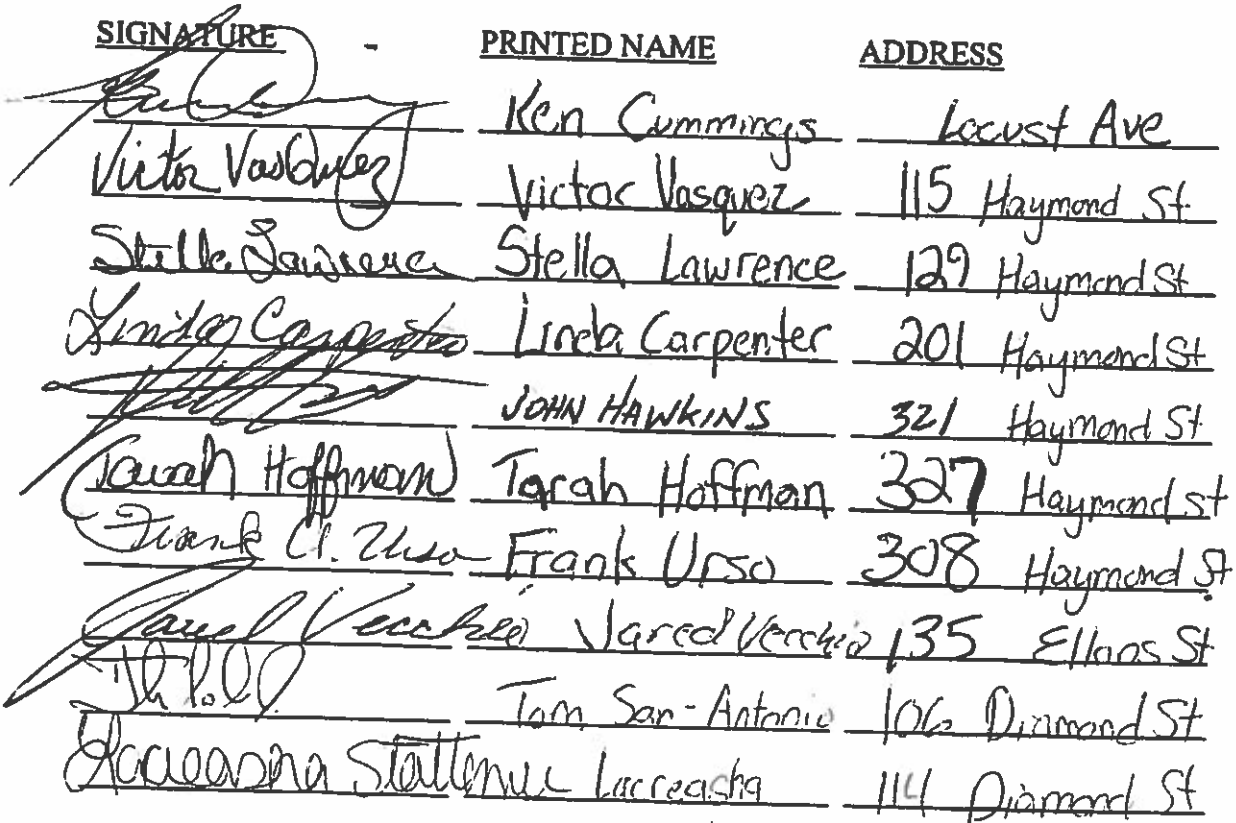 SIGNATURE - PRINTED NAME ADDRESS
Ken Cummings Locust Ave
Victor VasQuez Victor Vasquez 115 Haymond St
Stella Lawrence Stella Lawrence 129 Haymond St
Linda Carpenter Linda Carpenter 201 Haymond St
JOHN HAWKINS 321 Haymond St
Tarah Hoffman Tarah Hoffman 327 Haymond St
Frank A. Urso Frank Urso 308 Haymond St.
Jared Vecchio Jared Vecchio 135 St
Tom San-Antonio 106 Diamond St
Lacreasha Diamond St